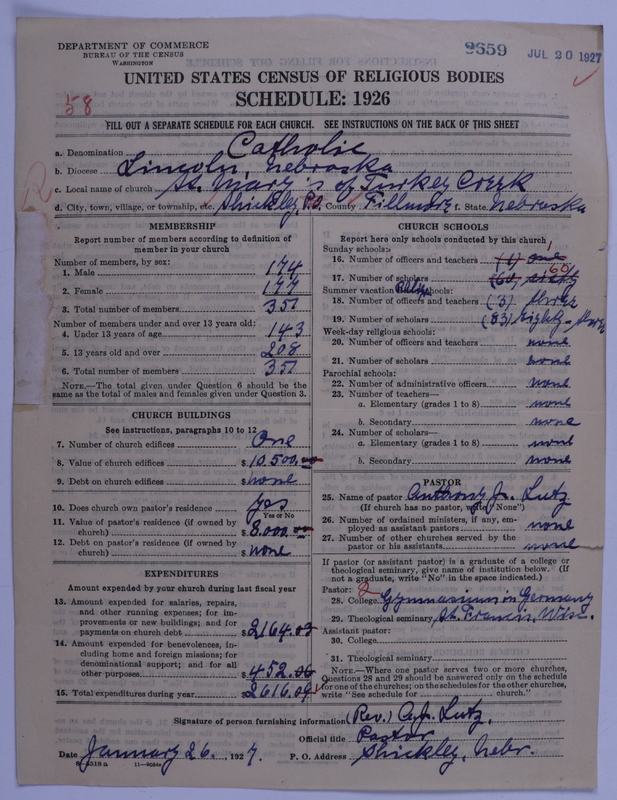 DEPARTMENT OF COMMERCE
BUREAU OF THE CENSUS
WASHINGTON
9659 JUL 20 1927
UNITED STATES CENSUS OF RELIGIOUS BODIES
SCHEDULE: 1926
58
FILL OUT A SEPARATE SCHEDULE FOR EACH CHURCH. SEE INSTRUCTIONS ON THE BACK OF THIS SHEET
a. Denomination Catholic
b. Diocese Lincoln, Nebraska
c. Local name of church St. Mary's of Turkey Creek
d. City, town, village, or township, etc. Shickley, P.O. County Fillmore f. State Nebraska
MEMBERSHIP
Report number of members according to definition of member in your church
Number of members, by sex:
1. Male 174
2. Female 177
3. Total number of members 351
Number of members under and over 13 years old:
4. Under 13 years of age 143
5. 13 years old and over 208
6. Total number of members 351
NOTE.—The total given under Question 6 should be the same as the total of males and females given under Question 3.
CHURCH BUILDINGS
See instructions, paragraphs 10 to 12
7. Number of church edifices One
8. Value of church edifices $10,500.00
9. Debt on church edifices $none
10. Does church own pastor's residence? yes
Yes or No
11. Value of pastor's residence (if owned by church) $8,000.00
12. Debt on pastor's residence (if owned by church) $none
EXPENDITURES
Amount expended by your church during last fiscal year
13. Amount expended for salaries, repairs, and other running expenses; for improvements or new buildings; and for payments on church debt $2164.09
14. Amount expended for benevolences, including home and foreign missions; for denominational support; and for all other purposes $452.00
15. Total expenditures during year $2616.09
CHURCH SCHOOLS
Report here only schools conducted by this church
Sunday schools:
16. Number of officers and teachers (1) one 1
17. Number of scholars (60) sixty 60
Summer vacation Bible schools:
18. Number of officers and teachers (3) three
19. Number of scholars (83) Eighty-three
Week-day religious schools:
20. Number of officers and teachers none
21. Number of scholars none
Parochial schools:
22. Number of administrative officers none
23. Number of teachers—
a. Elementary (grades 1 to 8) none
b. Secondary none
24. Number of scholars—
a. Elementary (grades 1 to 8) none
b. Secondary none
PASTOR
25. Name of pastor Anthony Jos. Lutz
(If church has no pastor, write "None")
26. Number of ordained ministers, if any, employed as assistant pastors none
27. Number of other churches served by the pastor or his assistants none
If pastor (or assistant pastor) is a graduate of a college or theological seminary, give name of institution below. (If not a graduate, write "No" in the space indicated.)
Pastor:
28. College Gymnasium in Germany
29. Theological seminary St. Francis, Wisc.
Assistant pastor:
30. College
31. Theological seminary
NOTE.—Where one pastor serves two or more churches, Questions 28 and 29 should be answered only on the schedule for one of the churches; on the schedules for the other churches, write "See schedule for church."
Signature of person furnishing information (Rev.) A.J. Lutz.
Official title Pastor
Date January 26., 1927. P. O. Address Shickley, Nebr.